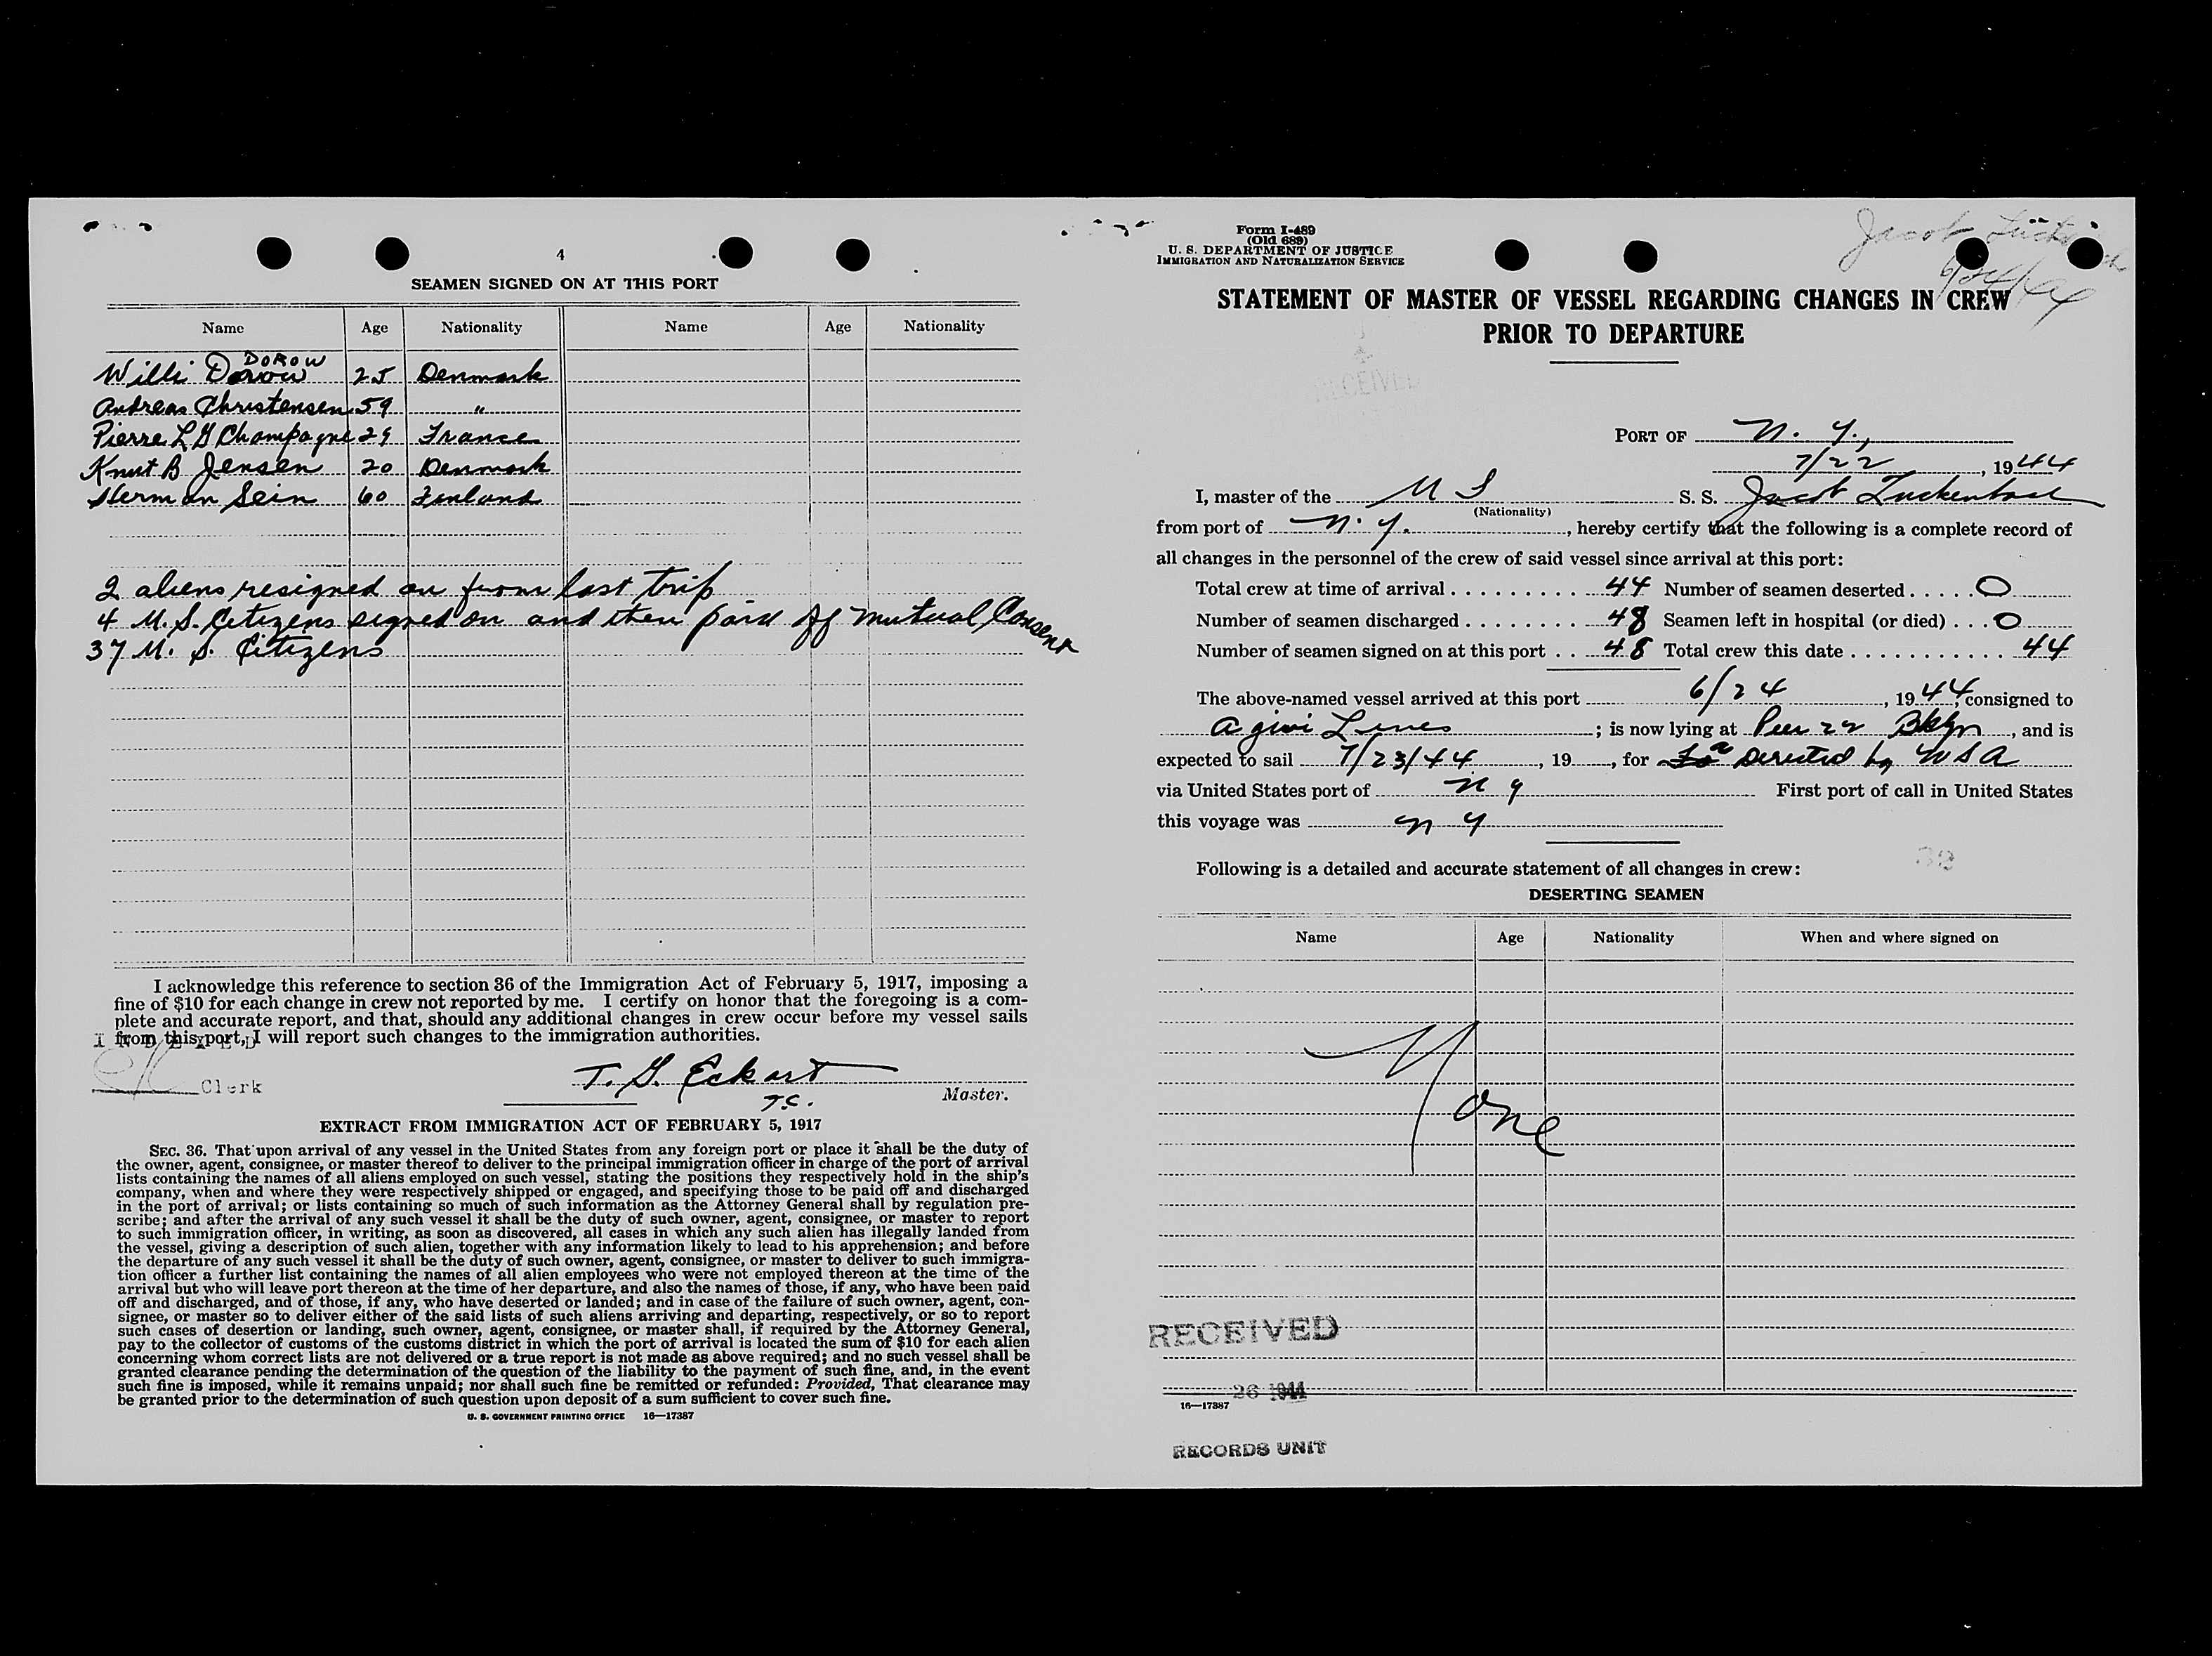 4
SEAMEN SIGNED ON AT THIS PORT
Name Age Nationality Name Age Nationality
DOROW
Willi Dorow 25 Denmark
Andreas Christensen 59 "
Pierre L G Champagne 29 France
Knut B Jensen 20 Denmark
Herman Sein 60 Finland
2 aliens resigned on from last trip
4 U.S. Citizens signed on and then paid off mutual Consent
37 U. S. Citizens
I acknowledge this reference to section 36 of the Immigration Act of February 5, 1917, imposing a
fine of $10 for each change in crew not reported by me. I certify on honor that the foregoing is a com-
plete and accurate report, and that, should any additional changes in crew occur before my vessel sails
from this port, I will report such changes to the immigration authorities.
INDEXED
Clerk
T. G. Eckart
Master.
EXTRACT FROM IMMIGRATION ACT OF FEBRUARY 5, 1917
SEC. 36. That upon arrival of any vessel in the United States from any foreign port or place it shall be the duty of
the owner, agent, consignee, or master thereof to deliver to the principal immigration officer in charge of the port of arrival
lists containing the names of all aliens employed on such vessel, stating the positions they respectively hold in the ship's
company, when and where they were respectively shipped or engaged, and specifying those to be paid off and discharged
in the port of arrival; or lists containing so much of such information as the Attorney General shall by regulation pre-
scribe; and after the arrival of any such vessel it shall be the duty of such owner, agent, consignee, or master to report
to such immigration officer, in writing, as soon as discovered, all cases in which any such alien has illegally landed from
the vessel, giving a description of such alien, together with any information likely to lead to his apprehension; and before
the departure of any such vessel it shall be the duty of such owner, agent, consignee, or master to deliver to such immigra-
tion officer a further list containing the names of all alien employees who were not employed thereon at the time of the
arrival but who will leave port thereon at the time of her departure, and also the names of those, if any, who have been paid
off and discharged, and of those, if any, who have deserted or landed; and in case of the failure of such owner, agent, con-
signee, or master so to deliver either of the said lists of such aliens arriving and departing, respectively, or so to report
such cases of desertion or landing, such owner, agent, consignee, or master shall, if required by the Attorney General,
pay to the collector of customs of the customs district in which the port of arrival is located the sum of $10 for each alien
concerning whom correct lists are not delivered or a true report is not made as above required; and no such vessel shall be
granted clearance pending the determination of the question of the liability to the payment of such fine, and, in the event
such fine is imposed, while it remains unpaid; nor shall such fine be remitted or refunded: Provided, That clearance may
be granted prior to the determination of such question upon deposit of a sum sufficient to cover such fine.
U. S. GOVERNMENT PRINTING OFFICE 16—17387
Form I-489
(Old 689)
U. S. DEPARTMENT OF JUSTICE
IMMIGRATION AND NATURALIZATION SERVICE
Jacob
6/24/44
STATEMENT OF MASTER OF VESSEL REGARDING CHANGES IN CREW
PRIOR TO DEPARTURE
RECEIVED
PORT OF N. Y.,
7/22, 1944
I, master of the U S S. S. Jacob Luckenbach
(Nationality)
from port of N. Y., hereby certify that the following is a complete record of
all changes in the personnel of the crew of said vessel since arrival at this port:
Total crew at time of arrival 44 Number of seamen deserted O
Number of seamen discharged 48 Seamen left in hospital (or died) O
Number of seamen signed on at this port 48 Total crew this date 44
The above-named vessel arrived at this port 6/24, 1944, consigned to
Agwi Lines; is now lying at Pier 22 Bklyn, and is
expected to sail 7/23/44, 19, for as Directed by WSA
via United States port of N Y First port of call in United States
this voyage was N Y
Following is a detailed and accurate statement of all changes in crew:
DESERTING SEAMEN
Name Age Nationality When and where signed on
None
RECEIVED
26 1944
16—17387
RECORDS UNIT